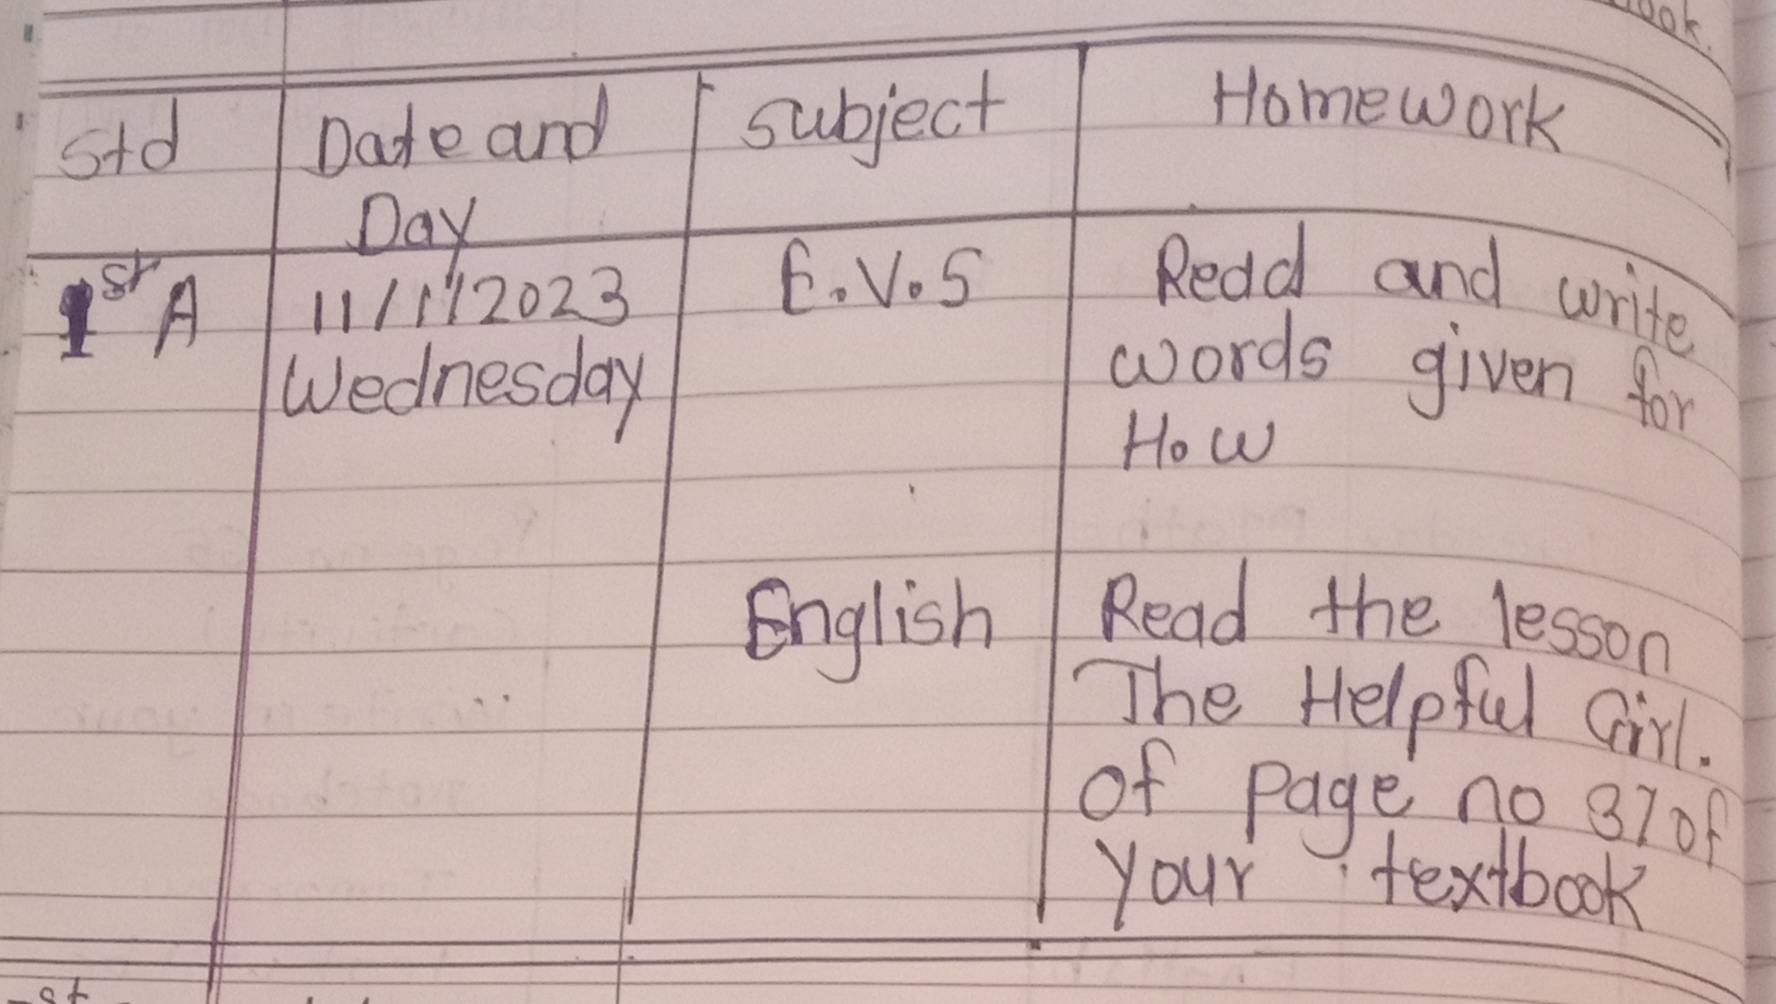 ook.
Std
Date and
Day
Subject
Homework
1st A
11/1/2023
Wednesday
E.V.S
Read and write
words given for
How
English
Read the lesson
The Helpful Girl.
of page no 37 of
your textbook
st